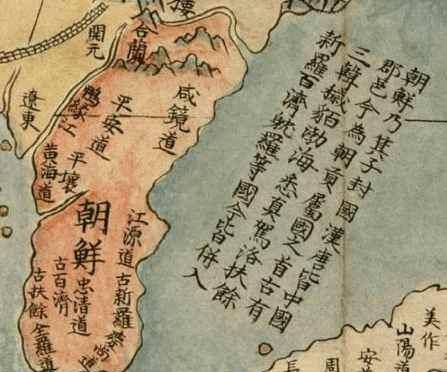 朝鮮乃箕子封國漢唐皆中國
郡邑今為朝貢屬國之首古有
三韓濊貊渤海悉直駕洛扶餘
新羅百濟耽羅等國今皆併入
合蘭
開元
遼東
咸鏡道
平安道
鴨綠江
平壤
黃海道
朝鮮
江源道
古新羅
忠清道
古百濟
慶尚道
古扶餘
全羅道
美作
山陽道
安
周
長